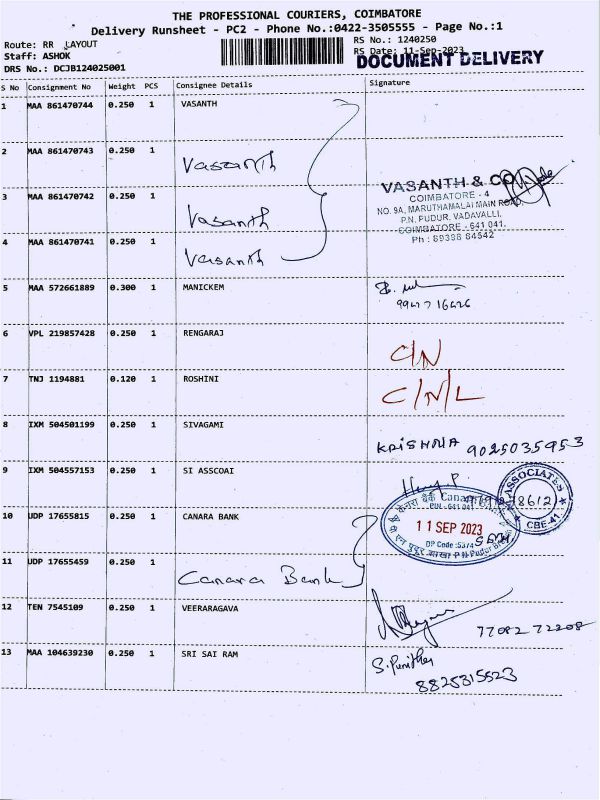 THE PROFESSIONAL COURIERS, COIMBATORE
Delivery Runsheet - PC2 - Phone No.:0422-3505555 - Page No.:1
Route: RR LAYOUT
RS No.: 1240250
Staff: ASHOK
RS Date: 11-Sep-2023
DRS No.: DCJB124025001
DOCUMENT DELIVERY
S No Consignment No Weight PCS Consignee Details Signature
1 MAA 861470744 0.250 1 VASANTH
2 MAA 861470743 0.250 1 Vasanth
3 MAA 861470742 0.250 1 Vasanth
4 MAA 861470741 0.250 1 Vasanth
VASANTH & CO
COIMBATORE - 4
NO. 9A, MARUTHAMALAI MAIN ROAD,
P.N. PUDUR, VADAVALLI,
COIMBATORE - 641 041.
Ph : 89398 64542
5 MAA 572661889 0.300 1 MANICKEM
6 VPL 219857428 0.250 1 RENGARAJ C/N
7 TNJ 1194881 0.120 1 ROSHINI C/N/L
8 IXM 504501199 0.250 1 SIVAGAMI KRISHNA 9025035953
9 IXM 504557153 0.250 1 SI ASSCOAI
ASSOCIATES
CBE-41.
10 UDP 17655815 0.250 1 CANARA BANK
केनरा बैंक Canara
11 SEP 2023
DP Code :5374
P N Pudur
11 UDP 17655459 0.250 1 Canara Bank
12 TEN 7545109 0.250 1 VEERARAGAVA 77082 72208
13 MAA 104639230 0.250 1 SRI SAI RAM
8825315523